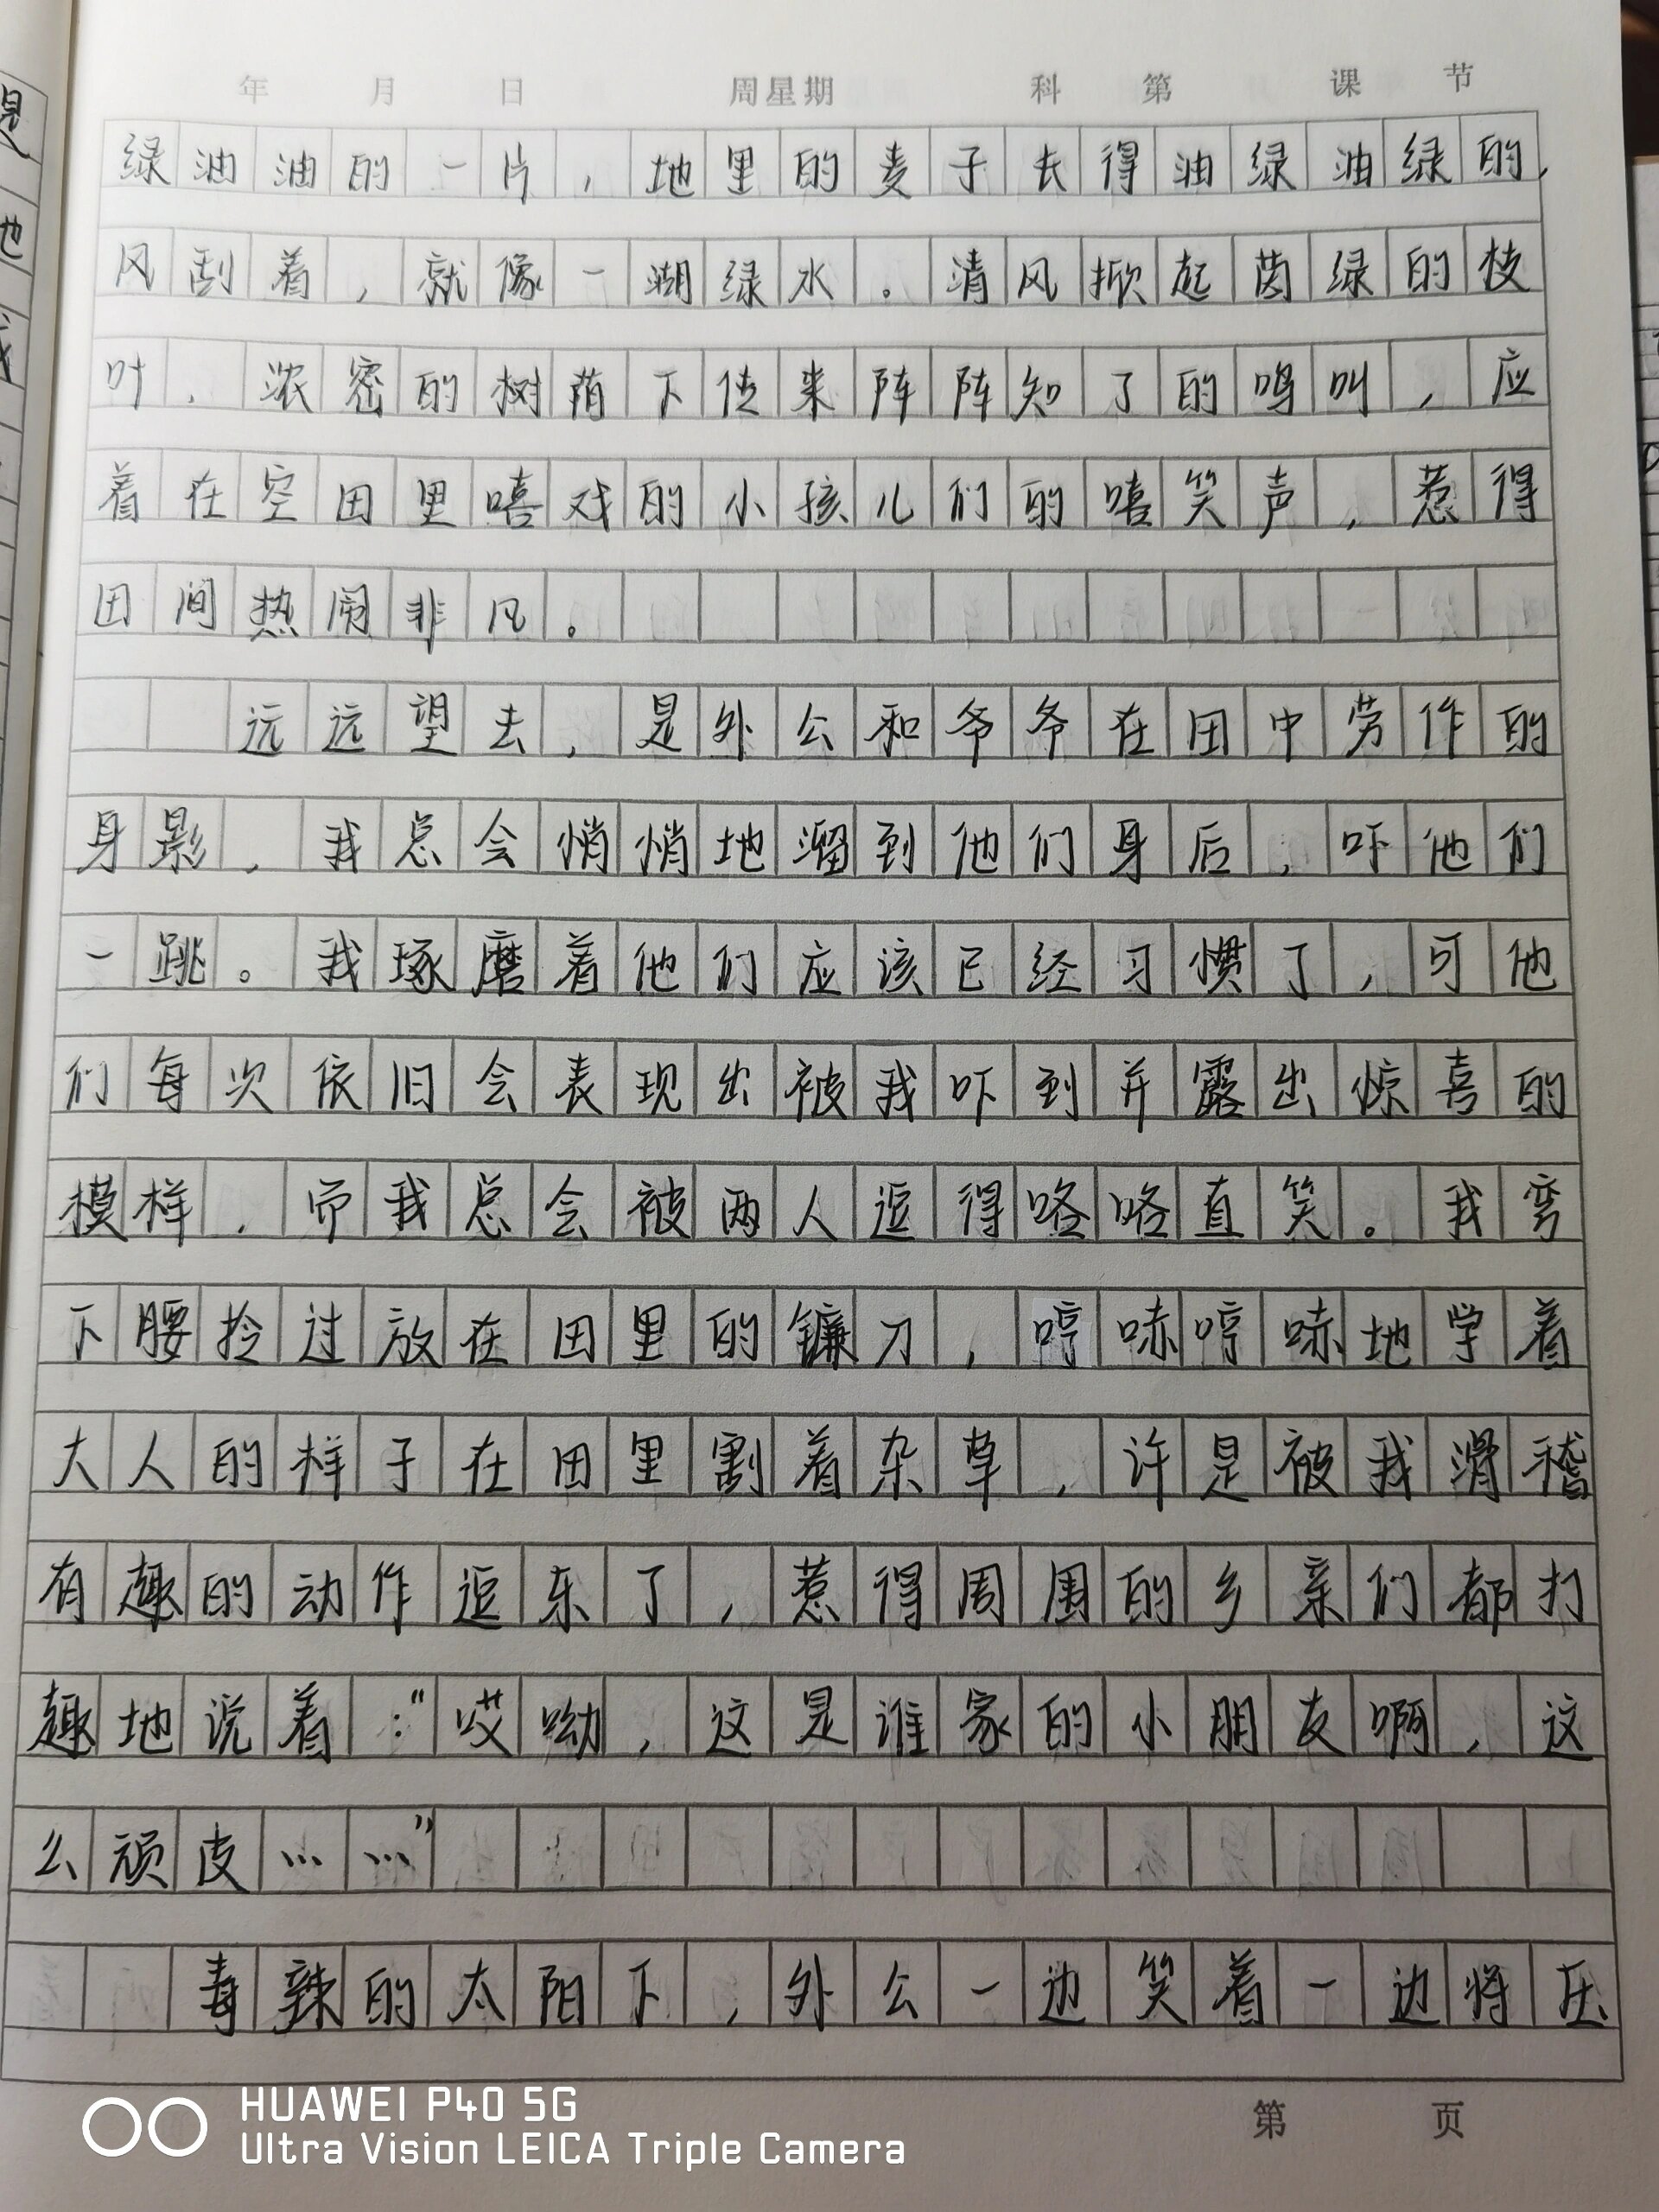 年 月 日 周星期 科 第 课 节
绿油油的一片，地里的麦子长得油绿油绿的，
风刮着，就像一湖绿水。清风掀起茵绿的枝
叶，浓密的树荫下传来阵阵知了的鸣叫，应
着在空田里嘻戏的小孩儿们的嘻笑声，惹得
田间热闹非凡。
远远望去，是外公和爷爷在田中劳作的
身影，我总会悄悄地溜到他们身后，吓他们
一跳。我琢磨着他们应该已经习惯了，可他
们每次依旧会表现出被我吓到并露出惊喜的
模样，而我总会被两人逗得咯咯直笑。我弯
下腰拎过放在田里的镰刀，哼哧哼哧地学着
大人的样子在田里割着杂草，许是被我滑稽
有趣的动作逗乐了，惹得周围的乡亲们都打
趣地说着：“哎呦，这是谁家的小朋友啊，这
么顽皮……”
毒辣的太阳下，外公一边笑着一边将压
第 页
HUAWEI P40 5G
Ultra Vision LEICA Triple Camera